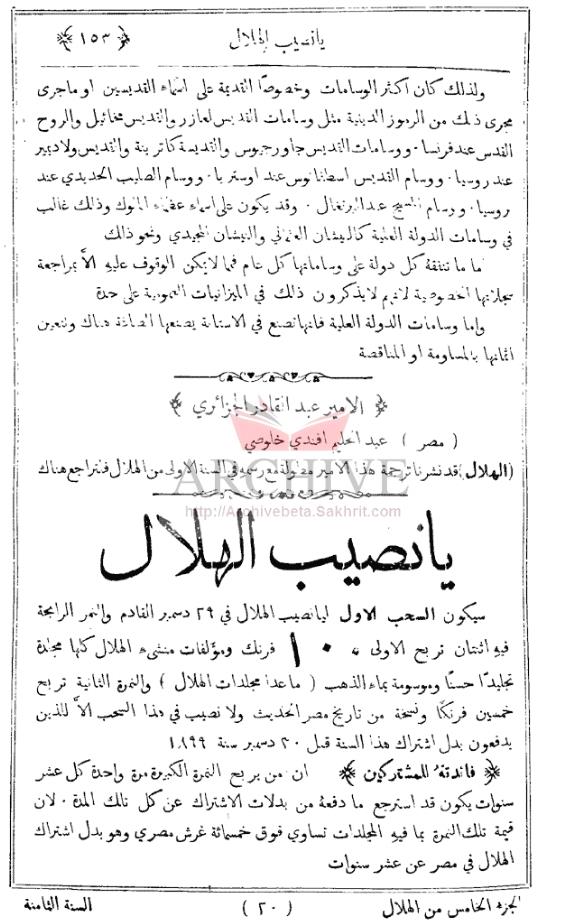 يانصيب الهلال ﴿ ١٥٣ ﴾
ولذلك كان اكثر الوسامات وخصوصًا القديمة على اسماء القديسين او ما جرى
مجرى ذلك من الرموز الدينية مثل وسامات القديس لعازر والقديس مخائيل والروح
القدس عند فرنسا . ووسامات القديس جاورجيوس والقديسة كاترينة والقديس ولاديمير
عند روسيا . ووسام القديس اسطفانوس عند اوستريا . ووسام الصليب الحديدي عند
روسيا . ووسام المسيح عند البرتغال . وقد يكون على اسماء عظماء الملوك وذلك غالب
في وسامات الدولة العلية كالنيشان العثماني والنيشان المجيدي ونحو ذلك
اما ما تنفقه كل دولة على وساماتها كل عام فما لا يمكن الوقوف عليهِ الاَّ بمراجعة
سجلاتها الخصوصية لانهم لا يذكرون ذلك في الميزانيات العمومية على حدة
واما وسامات الدولة العلية فانها تصنع في الاستانة يصنعها الصاغة هناك وتتعين
اثمانها بالمساومة او المناقصة
﴿ الامير عبد القادر الجزائري ﴾
( مصر ) عبد الحليم افندي خلوصي
(الهلال) قد نشرنا ترجمة هذا الامير مطولة مع رسمه في السنة الاولى من الهلال فتراجع هناك
ARCHIVE
http://Archivebeta.Sakhrit.com
يانصيب الهلال
سيكون السحب الاول ليانصيب الهلال في ٢٩ دسمبر القادم والنمر الرابحة
فيهِ اثنتان تربح الاولى ١٠٠ فرنك ومؤلفات منشىء الهلال كلها مجلدة
تجليدًا حسنًا وموسومة بماء الذهب ( ما عدا مجلدات الهلال ) والنمرة الثانية تربح
خمسين فرنكًا ونسخة من تاريخ مصر الحديث ولا نصيب في هذا السحب الاَّ للذين
يدفعون بدل اشتراك هذا السنة قبل ٢٠ دسمبر سنة ١٨٩٩
﴿ فائدتهُ للمشتركين ﴾ ان من يربح النمرة الكبيرة مرة واحدة كل عشر
سنوات يكون قد استرجع ما دفعهُ من بدلات الاشتراك عن كل تلك المدة . لان
قيمة تلك النمرة بما فيهِ المجلدات تساوي فوق خمسمائة غرش مصري وهو بدل اشتراك
الهلال في مصر عن عشر سنوات
الجزء الخامس من الهلال ( ٢٠ ) السنة الثامنة